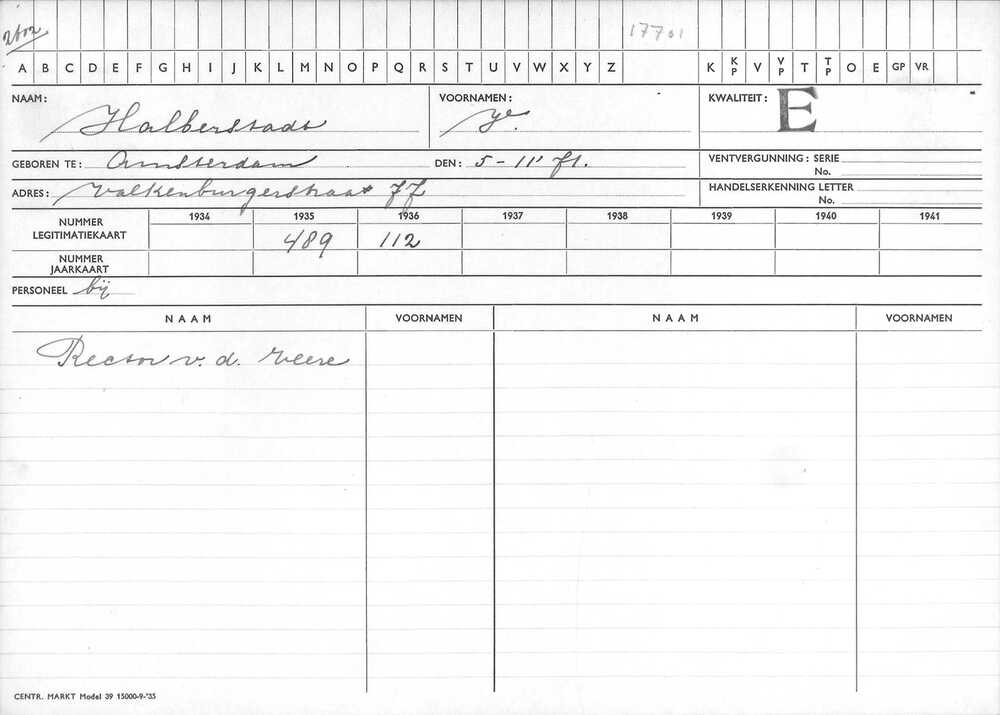 2602 17701
A B C D E F G H I J K L M N O P Q R S T U V W X Y Z K KP V VP T TP O E GP VR
NAAM: Halberstadt VOORNAMEN: KWALITEIT: E
GEBOREN TE: Amsterdam DEN: 5-11' 71. VENTVERGUNNING: SERIE
No.
ADRES: Valkenburgerstraat HANDELSERKENNING LETTER
No.
1934 1935 1936 1937 1938 1939 1940 1941
NUMMER LEGITIMATIEKAART 489 112
NUMMER JAARKAART
PERSONEEL bij
NAAM VOORNAMEN NAAM VOORNAMEN
Rector v. d. Veere
CENTR. MARKT Model 39 15000-9-'35